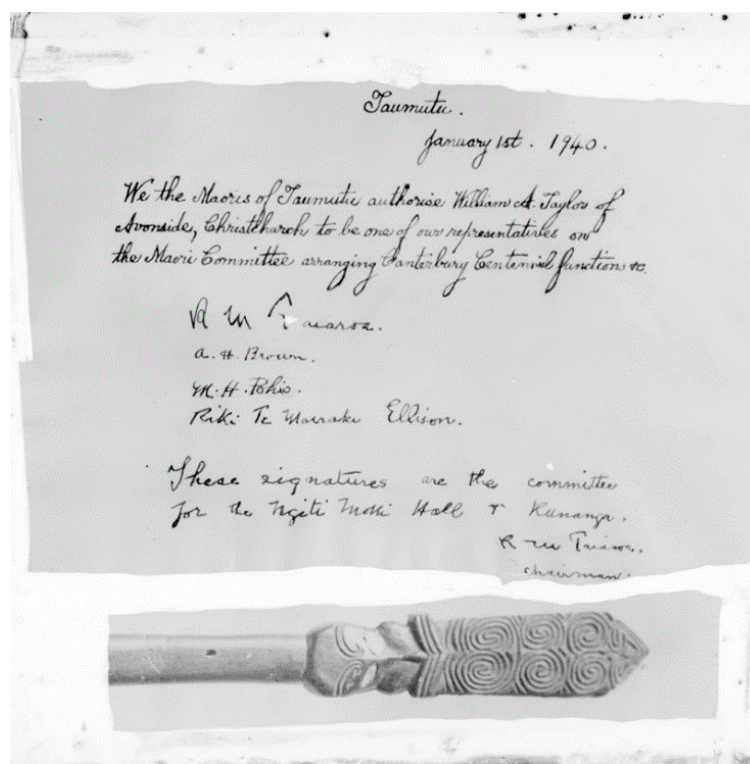 Taumutu.
January 1st. 1940.
We the Maoris of Taumutu authorise William A. Taylor of
Avonside, Christchurch to be one of our representatives on
the Maori Committee arranging Canterbury Centennial functions &c.
R M Taiaroa.
A. H. Brown.
M. H. Pohio.
Riki Te Mairaki Ellison.
These signatures are the committee
for the Ngiti Moki Hall & Runanga.
R M Taiaroa.
Chairman.